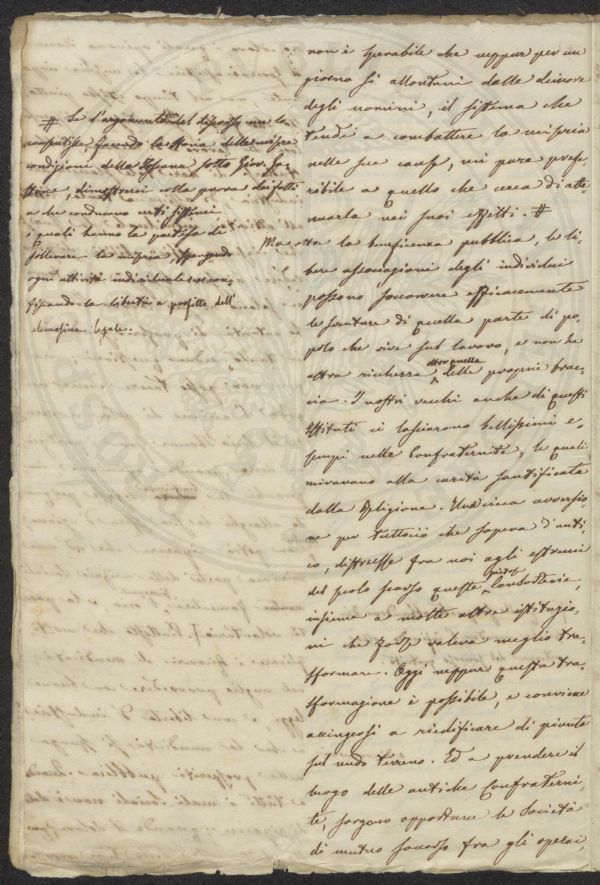 non è sperabile che neppur per un
giorno si allontani dalle dimore
degli uomini, il sistema che
tende a combattere la miseria
nelle sue cause, mi pare prefe-
ribile a quello che cerca di atte-
nuarla nei suoi effetti. #
# Se l'argomento del discorso me lo
consentisse, facendo la storia delle misere
condizioni della Toscana sotto Gio. Ga-
stone, dimostrerei colla prova dei fatti
a che conducono certi sistemi
i quali hanno la pretesa di
sollevare la miseria,
ogni attività individuale e con-
fiscando la libertà a profitto dell'
elemosina legale.
la beneficenza pubblica, le li-
bere associazioni degli individui
possono soccorrere efficacemente
le sventure di quella parte di po-
polo che vive sul lavoro, e non ha
altra ricchezza altro quella delle proprie brac-
cia. I nostri vecchi anche di questi
Istituti ci lasciarono bellissimi e-
sempi nelle Confraternite, le quali
miravano alla carità santificata
dalla Religione. Una cieca avversio-
ne per tuttociò che sapeva d'anti-
co, distrusse fra noi agli estremi
del secolo scorso queste consorterie,
insieme a molte altre istituzio-
ni che forse valeva meglio tra-
sformare. Oggi neppur questa tra-
sformazione è possibile, e conviene
accingersi a riedificare di pianta
sul nudo terreno. Ed a prendere il
luogo delle antiche Confraterni-
te, sorgono opportune le Società
di mutuo soccorso fra gli operai,